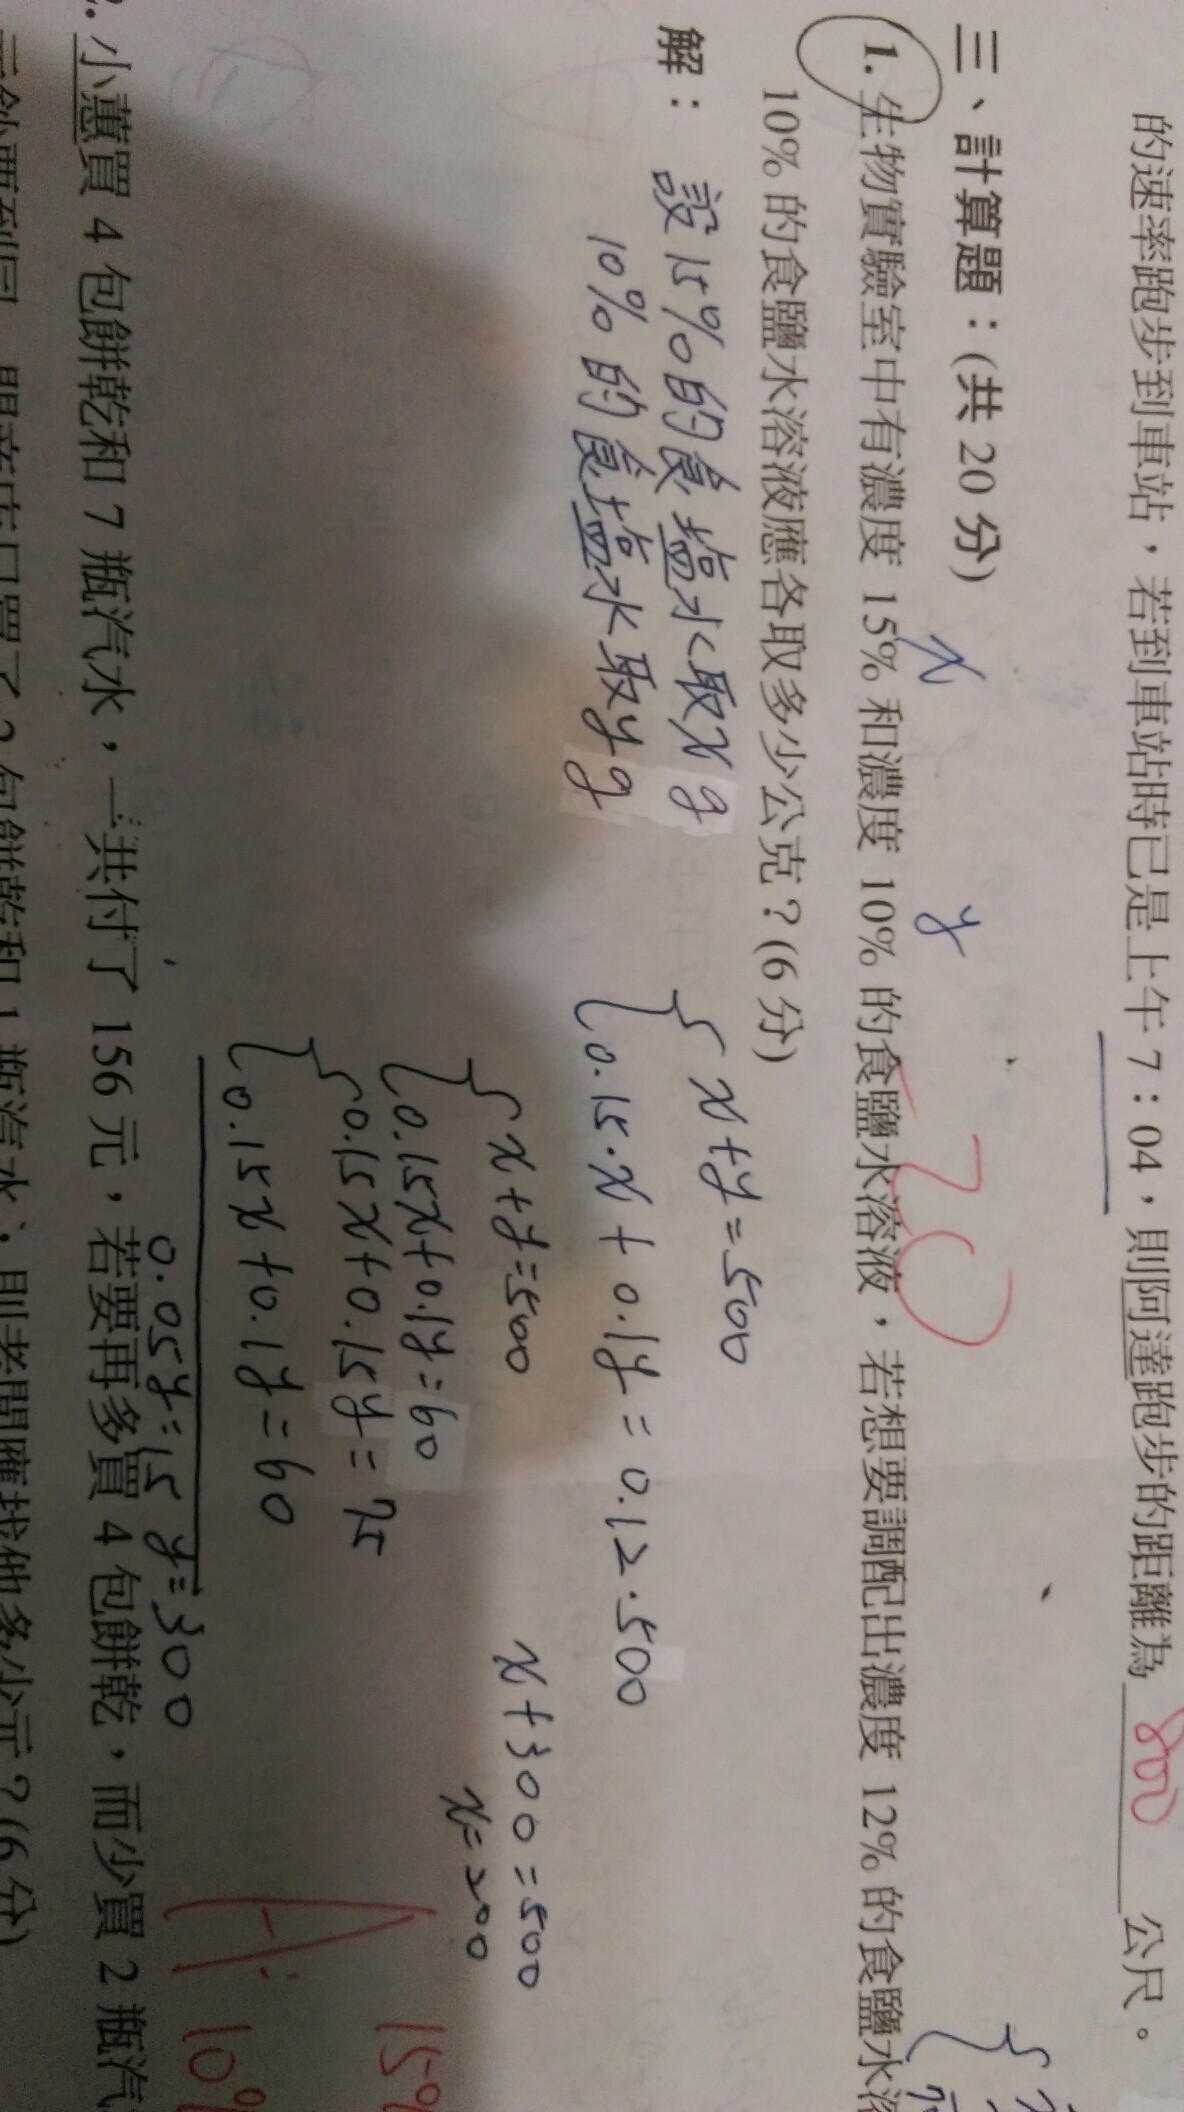 的速率跑步到車站，若到車站時已是上午 7：04，則阿達跑步的距離為 800 公尺。
三、計算題：(共 20 分)
x
y
1. 生物實驗室中有濃度 15% 和濃度 10% 的食鹽水溶液，若想要調配出濃度 12% 的食鹽水溶
10% 的食鹽水溶液應各取多少公克？(6 分)
解：設15%的食塩水取x g
10%的食塩水取y g
x+y=500
0.15·x+0.1y=0.12·500
x+y=500
0.15x+0.1y=60
0.15x+0.15y=75
0.15x+0.1y=60
0.05y=15 y=300
x+300=500
x=200
A:
15%
10%
小蕙買 4 包餅乾和 7 瓶汽水，一共付了 156 元，若要再多買 4 包餅乾，而少買 2 瓶汽
包餅乾和 1 瓶汽水，則老闆應找他多少元？(6 分)